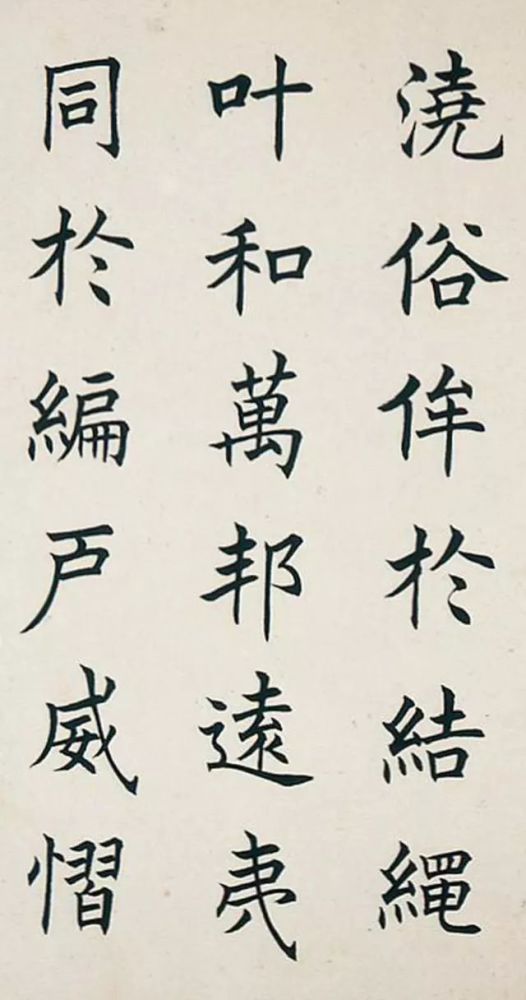 澆俗侔於結繩
叶和萬邦遠夷
同於編戸威慴